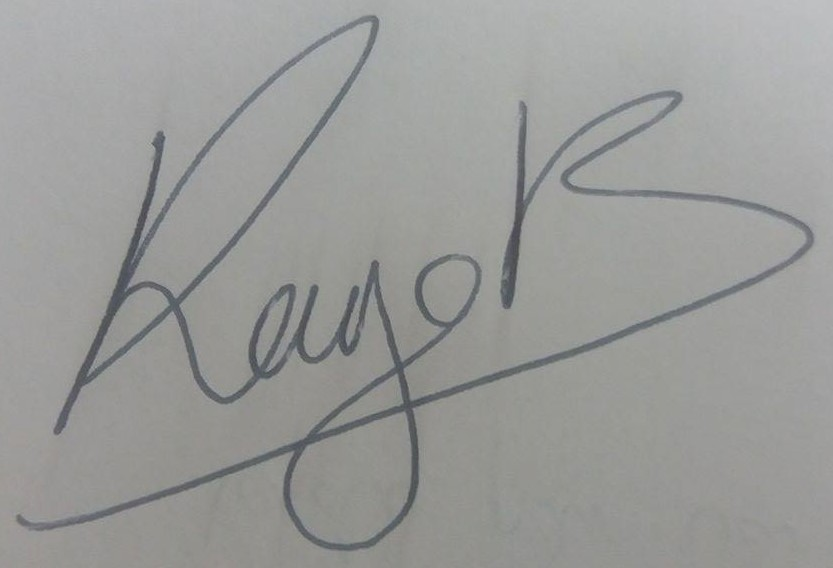 Rayo B